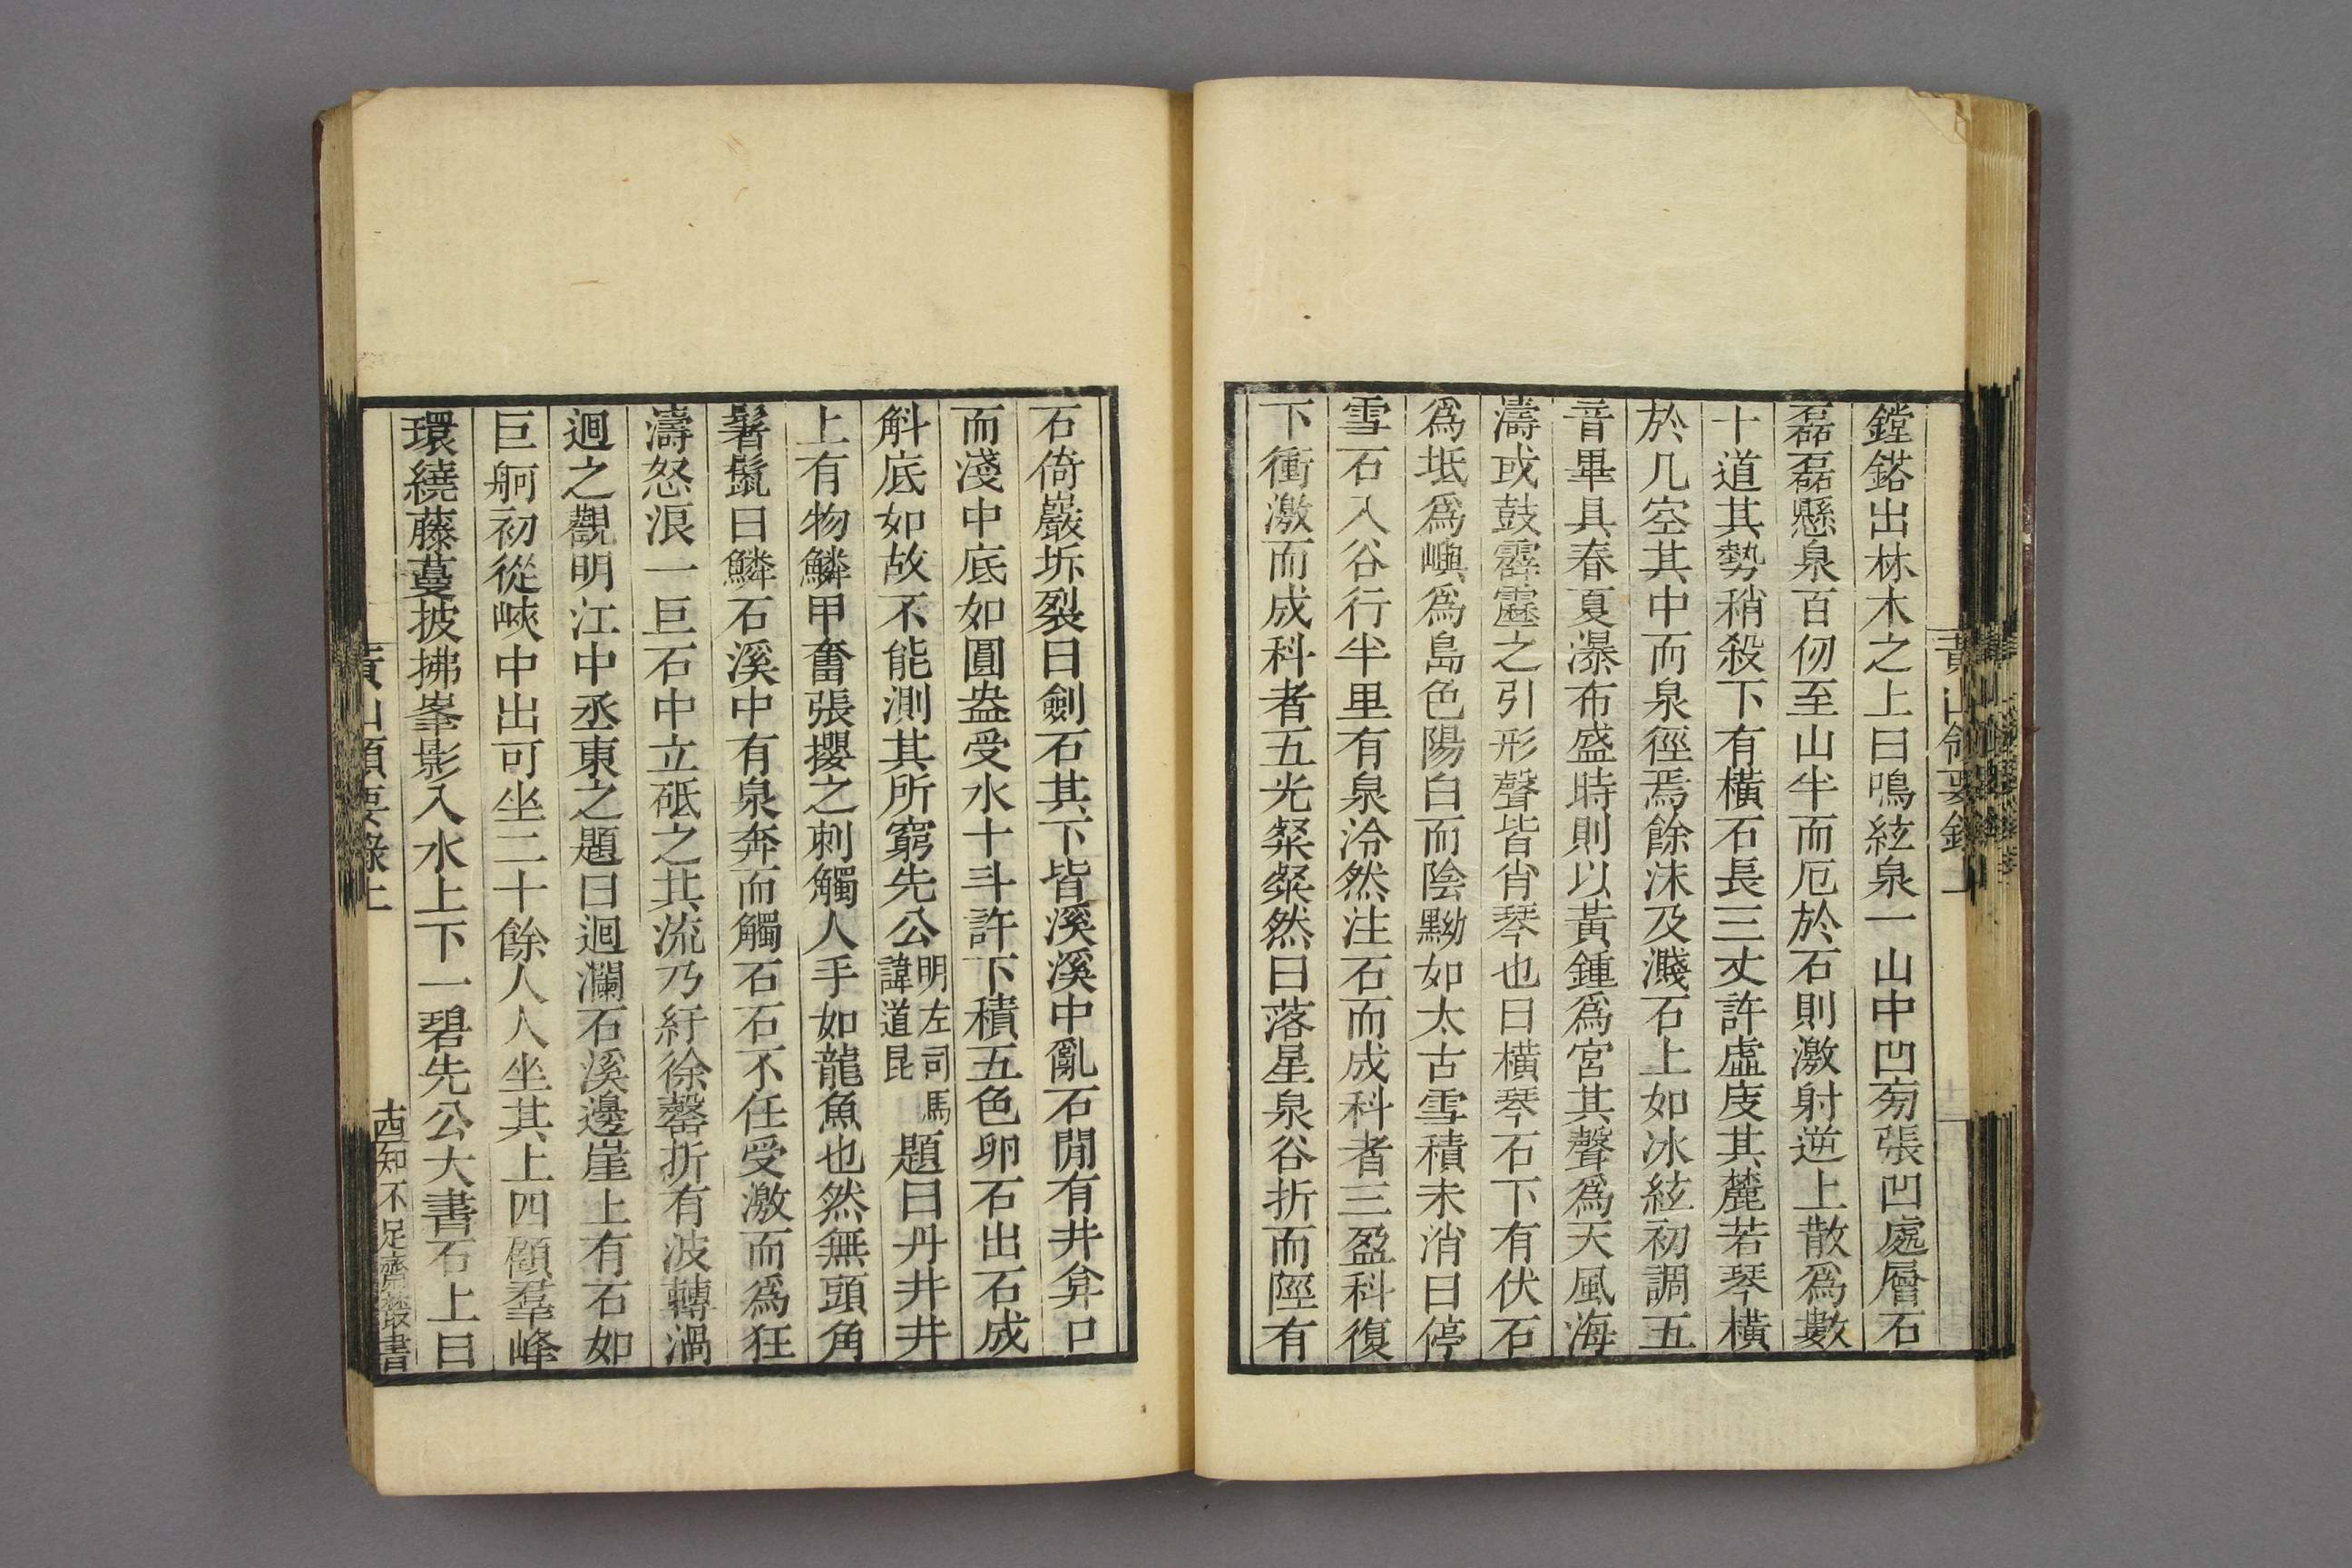 鏜鎝出林木之上曰鳴絃泉一山中凹旁張凹處層石
磊磊懸泉百仞至山半而厄於石則激射逆上散爲數
十道其勢稍殺下有橫石長三丈許虛庋其麓若琴橫
於几空其中而泉徑焉餘沫及濺石上如冰絃初調五
音畢具春夏瀑布盛時則以黃鍾爲宮其聲爲天風海
濤或鼓霹靂之引形聲皆肖琴也曰橫琴石下有伏石
爲坻爲嶼爲島色陽白而陰黝如太古雪積未消曰停
雪石入谷行半里有泉泠然注石而成科者三盈科復
下衝激而成科者五光粲粲然曰落星泉谷折而陘有
石倚巖坼裂曰劍石其下皆溪溪中亂石閒有井弇口
而淺中底如圓盎受水十斗許下積五色卵石出石成
斛底如故不能測其所窮先公明左司馬諱道昆題曰丹井井
上有物鱗甲奮張攖之刺觸人手如龍魚也然無頭角
鬐鬣曰鱗石溪中有泉奔而觸石石不任受激而爲狂
濤怒浪一巨石中立砥之其流乃紆徐罄折有波轉渦
迴之觀明江中丞東之題曰迴瀾石溪邊崖上有石如
巨舸初從峽中出可坐二十餘人人坐其上四顧羣峰
環繞藤蔓披拂峯影入水上下一碧先公大書石上曰
黃山領要錄上
知不足齋叢書